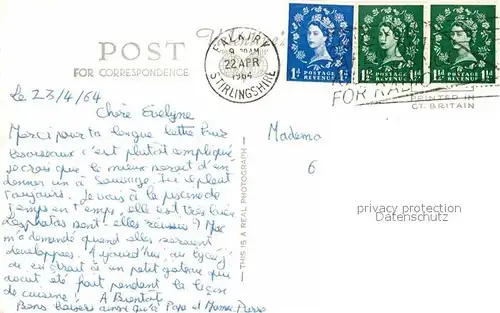 POST
FOR CORRESPONDENCE
FALKIRK
9 30AM
22 APR
1964
STIRLINGSHIRE
1D POSTAGE REVENUE 1D
1½D POSTAGE REVENUE 1½D
1½D POSTAGE REVENUE 1½D
FOR
PRINTED IN
GT. BRITAIN
THIS IS A REAL PHOTOGRAPH
Le 23/4/64
Chère Evelyne
Merci pour ta longue lettre. Pour
c'est plutôt compliqué,
je crois que le mieux serait d'en
donner un à Il pleut
toujours. Je vais à la piscine de
temps en temps, elle est très
Les photos sont-elles réussies ? Mac
m'a demandé quand elles seraient
développées. Aujourd'hui, au lycée j'
ai droit à un petit gateau que
avait été fait pendant la leçon
de cuisine. A Bientôt
Bons baisers ainsi qu'à Papa et Maman Pierre
Madema
6
privacy protection
Datenschutz